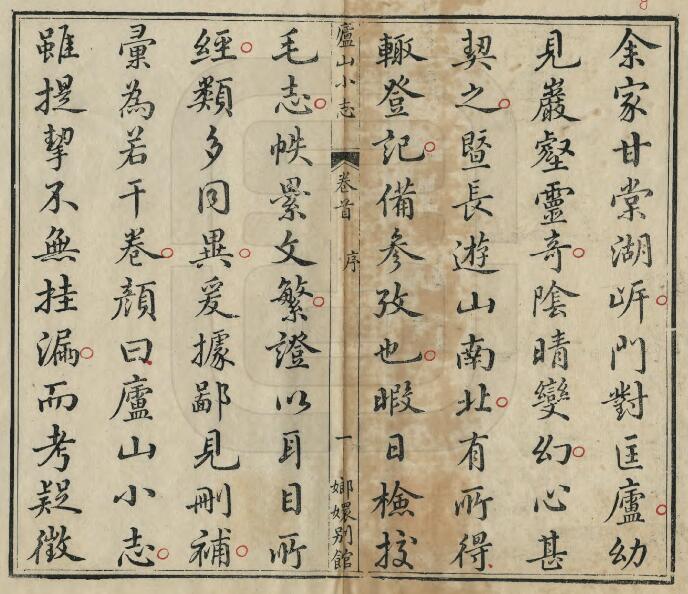 余家甘棠湖㟁門對匡廬幼
見巖壑靈奇陰晴變幻心甚
契之暨長遊山南北有所得
輙登記備參攷也暇日檢挍
廬山小志 卷首 序 一 嫏嬛別館
毛志帙纍文繁證以耳目所
經類多同異爰據鄙見刪補
彚為若干卷顏曰廬山小志
雖提挈不無挂漏而考疑徵